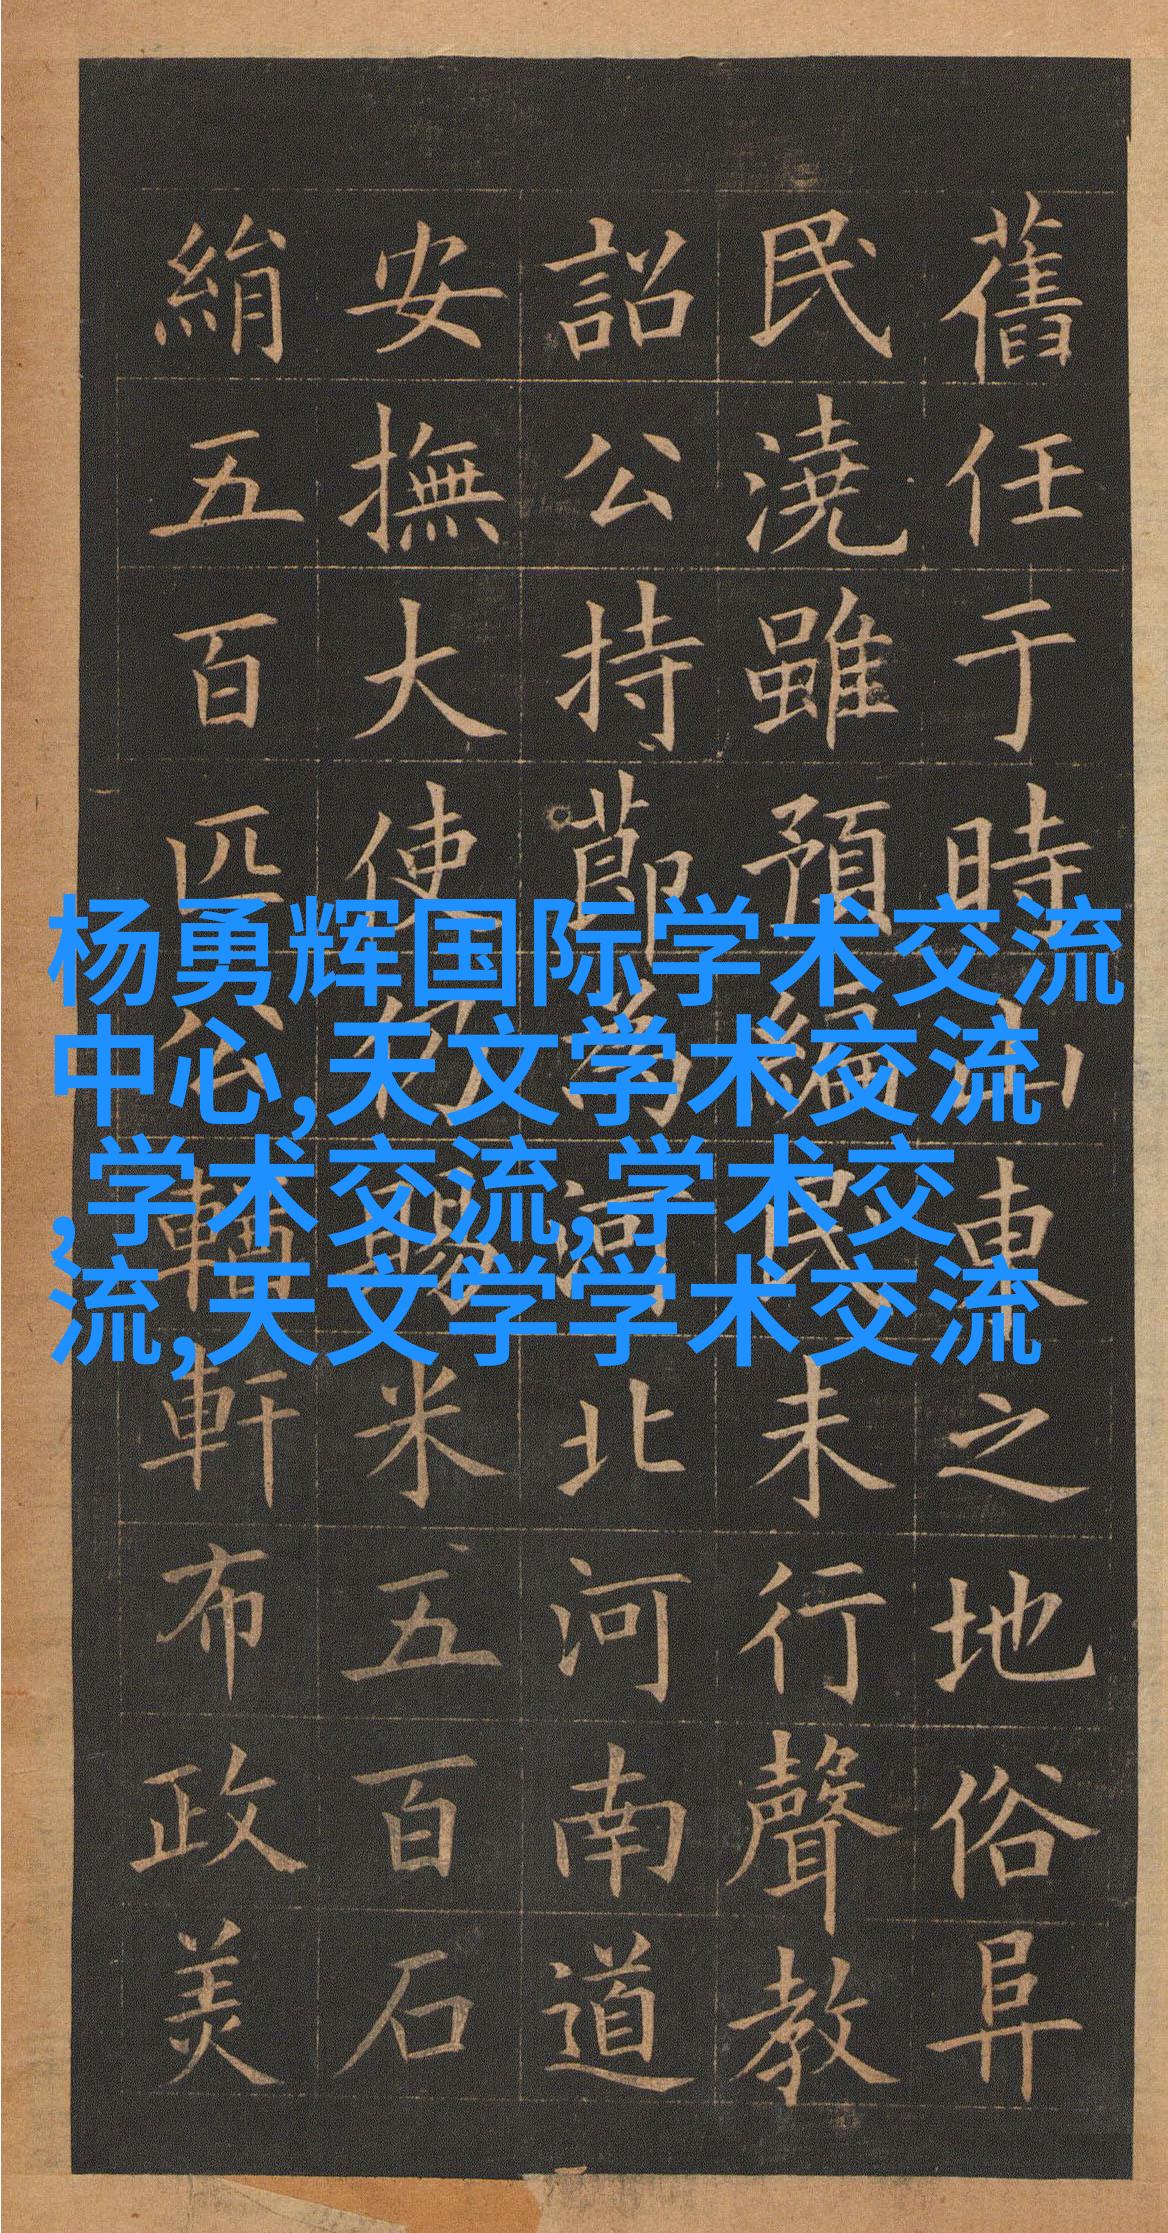 舊任于時山東之地俗阜
民澆雖預編民未行聲教
詔公持節為河北河南道
安撫大使仍賜米五百石
絹五百匹公輶軒布政美
杨勇辉国际学术交流
中心,天文学术交流
,学术交流,学术交
流,天文学学术交流